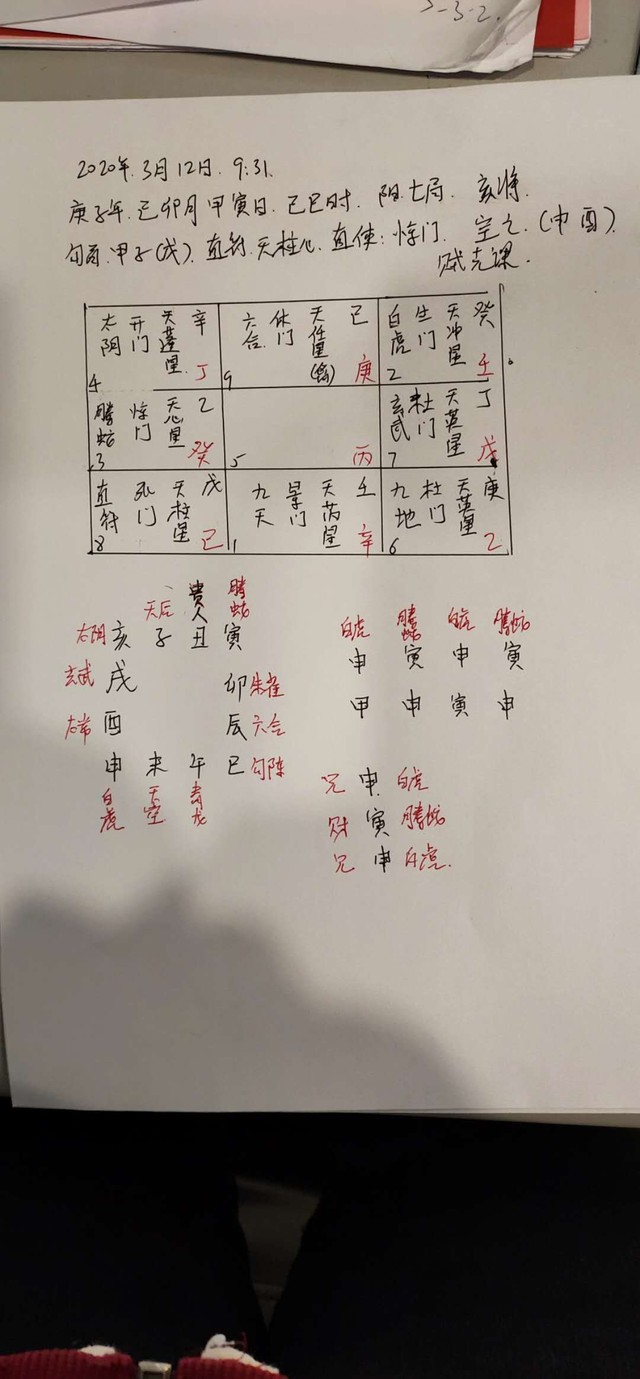 5-3-2.
2020年.3月12日. 9:31.
庚子年.己卯月 甲寅日.己巳时. 阳七局. 亥将.
旬首:甲子(戊).直符.天柱心.直使:惊门. 空亡.(申酉).
贼克课.
太阴 开门 天蓬星 辛 丁 4
六合 休门 天任星(禽) 己 庚 9
白虎 生门 天冲星 癸 壬 2
腾蛇 惊门 天心星 乙 癸 3
丙 5
玄武 杜门 天英星 丁 戊 7
直符 死门 天柱星 戊 己 8
九天 景门 天芮星 壬 辛 1
九地 杜门 天英星 庚 乙 6
天后 贵人 腾蛇
太阴 亥 子 丑 寅
玄武 戌 卯 朱雀
太常 酉 辰 六合
申 未 午 巳 勾陈
白虎 天空 青龙
白虎 腾蛇 白虎 腾蛇
申 寅 申 寅
甲 申 寅 申
兄 申 白虎
财 寅 腾蛇
兄 申 白虎.